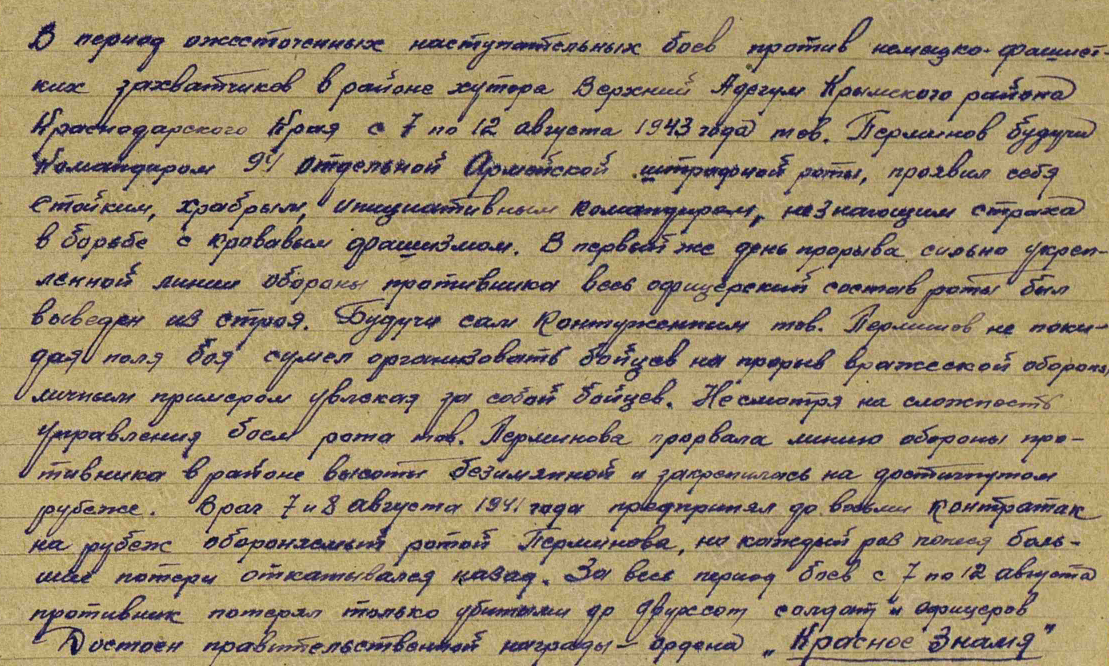 В период ожесточенных наступательных боев против немецко-фашист-
ких захватчиков в районе хутора Верхний Адегум Крымского района
Краснодарского Края с 7 по 12 августа 1943 года тов. Перминов будучи
Командиром 94 отдельной Армейской штрафной роты, проявил себя
Стойким, храбрым, инициативным командиром, незнающим страха
в борьбе с кровавым фашизмом. В первый же день прорыва сильно укреп-
ленной линии обороны противника весь офицерский состав роты был
выведен из строя. Будучи сам Контуженным тов. Перминов не поки-
дая поля боя сумел организовать бойцев на прорыв вражеской обороны,
личным примером увлекая за собой бойцев. Несмотря на сложность
управления боем рота тов. Перминова прорвала линию обороны про-
тивника в районе высоты безимянной и закрепилась на достигнутом
рубеже. Враг 7 и 8 августа 1941 года предпринял до восьми контратак
на рубеж обороняемый ротой Перминова, но каждый раз понеся боль-
шие потери откатывался назад. За весь период боев с 7 по 12 августа
противник потерял только убитыми до двухсот солдат и офицеров
Достоен правительственной награды – ордена „Красное Знамя"